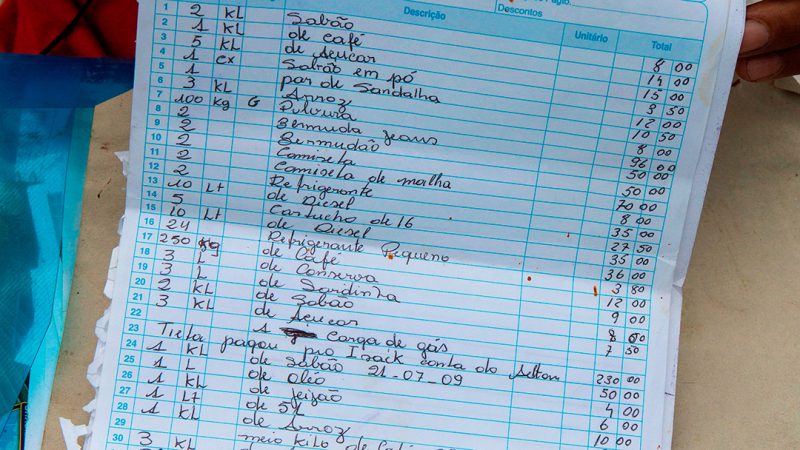 Descrição Descontos Unitário Total
1 2 KL Sabão 8 00
2 1 KL de café 14 00
3 5 KL de Açucar 15 00
4 1 cx Sabão em pó 3 50
5 1 par de Sandalha 12 00
6 3 KL Arroz 10 50
7 100 kg G 8 00
8 2 Bermuda jeans 96 00
9 2 Bermudão 50 00
10 2 Camiseta 50 00
11 2 Camiseta de malha 70 00
12 2 Refrigerante 8 00
13 10 Lt de Diesel 35 00
14 5 Cartucho de 16 27 50
15 10 Lt de Diesel 35 00
16 24 Refrigerante Pequeno 36 00
17 250 kg de Café 3 80
18 3 L de Conserva 12 00
19 3 L de Sardinha 9 00
20 2 KL de Sabão 8 00
21 3 KL de Açucar 7 50
1 Carga de gás
23 Tieta pagou pro Isaik conta do Aelton 230 00
24 1 KL de sabão 21-07-09 50 00
25 1 L de oléo 4 00
26 1 KL de feijão 6 00
27 1 Lt de 5L 10 00
28 1 KL de Arroz
29
30 3 KL meio kilo de Café